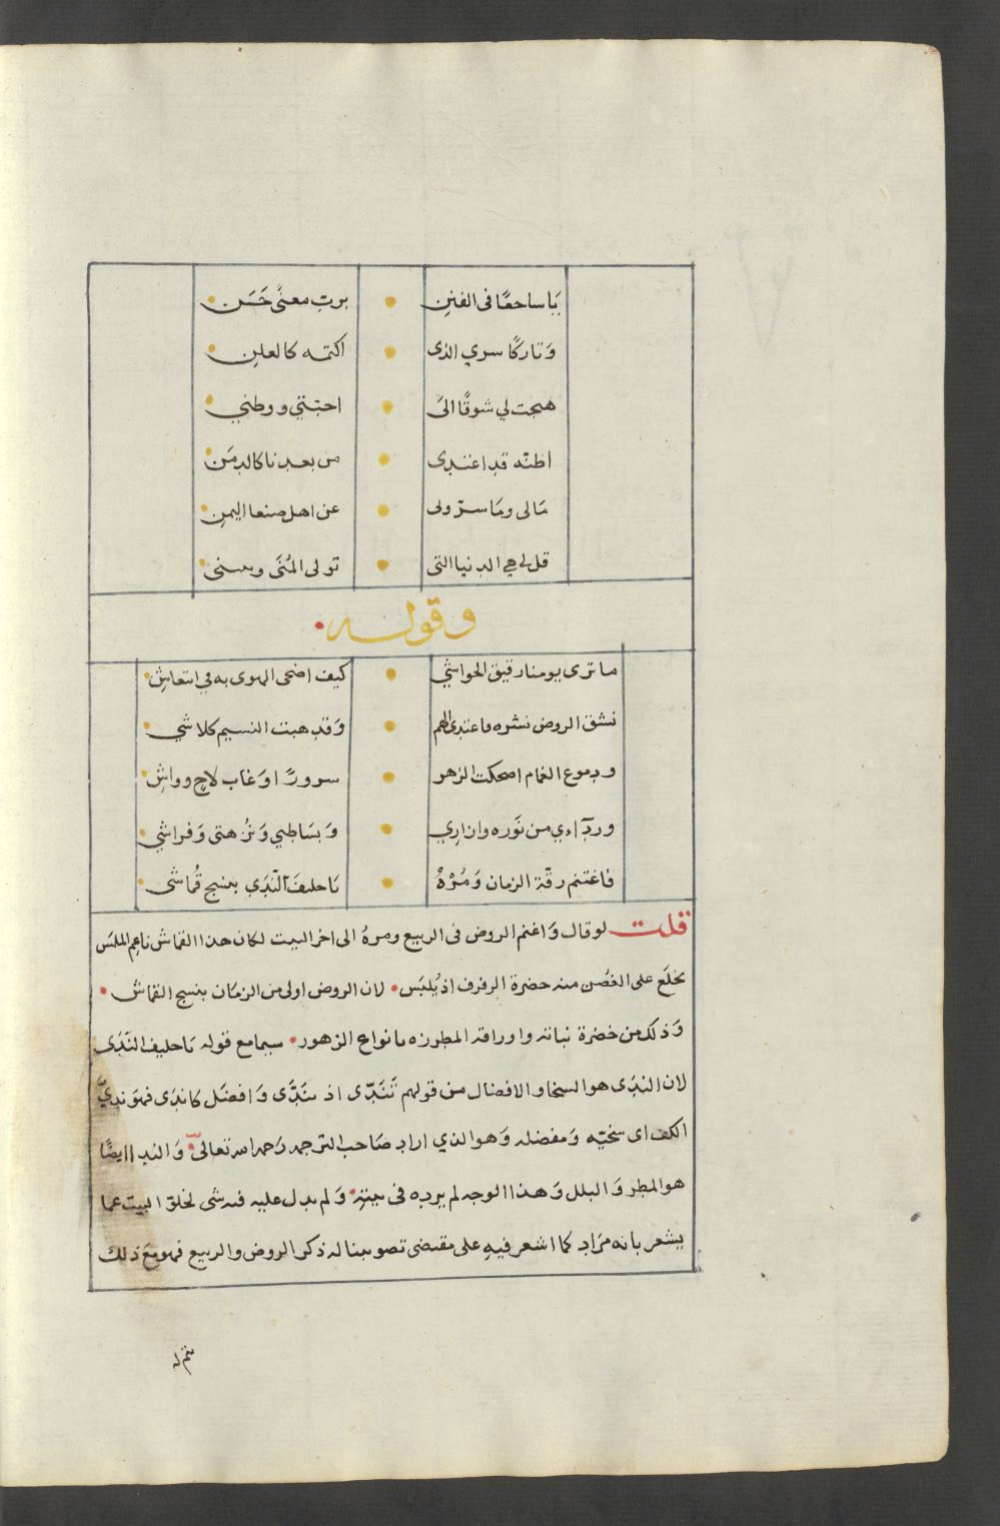 يَا ساجعًا فى الفننِ • بربِ معنًى حَسَن
وَتاركًا سري الذى • اكتمه كالعلنِ
هيجت لي شوقًا الىَ • احبّتي ووطني
اظنّه قد اغتدى • من بعدنا كالدِمَن
مَالى ومَا سرّ ولى • عن اهل صنعا اليمنِ
قل لى هي الدنيا التى • تولى المُنَى
وقوله
ما ترى يومنا رقيق الحواشي • كيف اضحى الهوى به في انتعاشِ
نشق الروض نشره فاغتدى الهم • وَقد هبت النسيم كلاشي
ودموع الغمام اضحكت الزهر • سرورًا وغاب لاحٍ وواشِ
وردَآءي من نَوره وازاري • وَبسَاطي وَنُزهتى وَفراشي
فاغتنم رقّة الزمان وَمُرْهُ • يَا حليفَ النّدَي بنسج قُماشى
قلت لو قال وَاغنم الروض فى الربيع ومرهُ الى اخر البيت لكان هذا القماش ناعِم الملمَس
يخلَع على الغصُن منه حضرة الرفرف اذ يُلبَس • لان الروض اولى من الزمَان بنسج القماش •
وَذلك من خضرة نباته واوراقه المطرزه بانواع الزهور • سيما مع قوله يَا حليف النّدَى
لان الندَى هو السخا والافضال من قولهم تَنَدّى اذ تندَّى وَافضَل كاندَى فهوَ نديُّ
الكف اى سخيّه وَمفضله وَهو الذي اراد صَاحب الترجمه رَحمه الله تعالى • وَالندا ايضًا
هو المطر وَالبلل وَهذا الوجه لم يرده فى بيته • وَلم يدل عليه فيه شى لخلو البيت عما
يشعر بانه مرَاد كما اشعر فيهِ على مقتضى تصويبنا له ذكر الروض والربيع فهو مَعَ ذلك